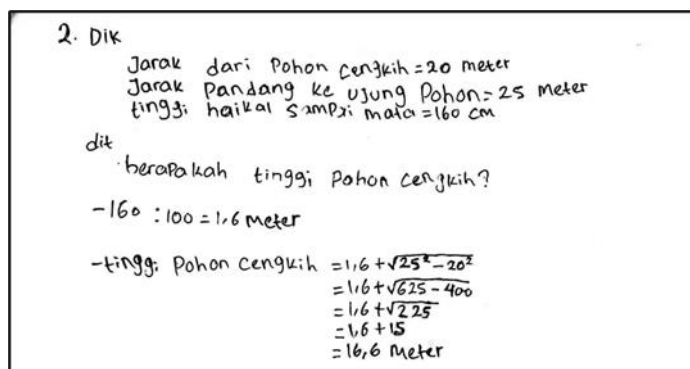 2. Dik
Jarak dari Pohon cengkih = 20 meter
Jarak Pandang ke ujung Pohon = 25 meter
tinggi haikal sampai mata = 160 cm
dit
berapakah tinggi Pohon cengkih?
- 160 : 100 = 1,6 meter
- tinggi Pohon cengkih = 1,6 + √25² - 20²
= 1,6 + √625 - 400
= 1,6 + √225
= 1,6 + 15
= 16,6 Meter